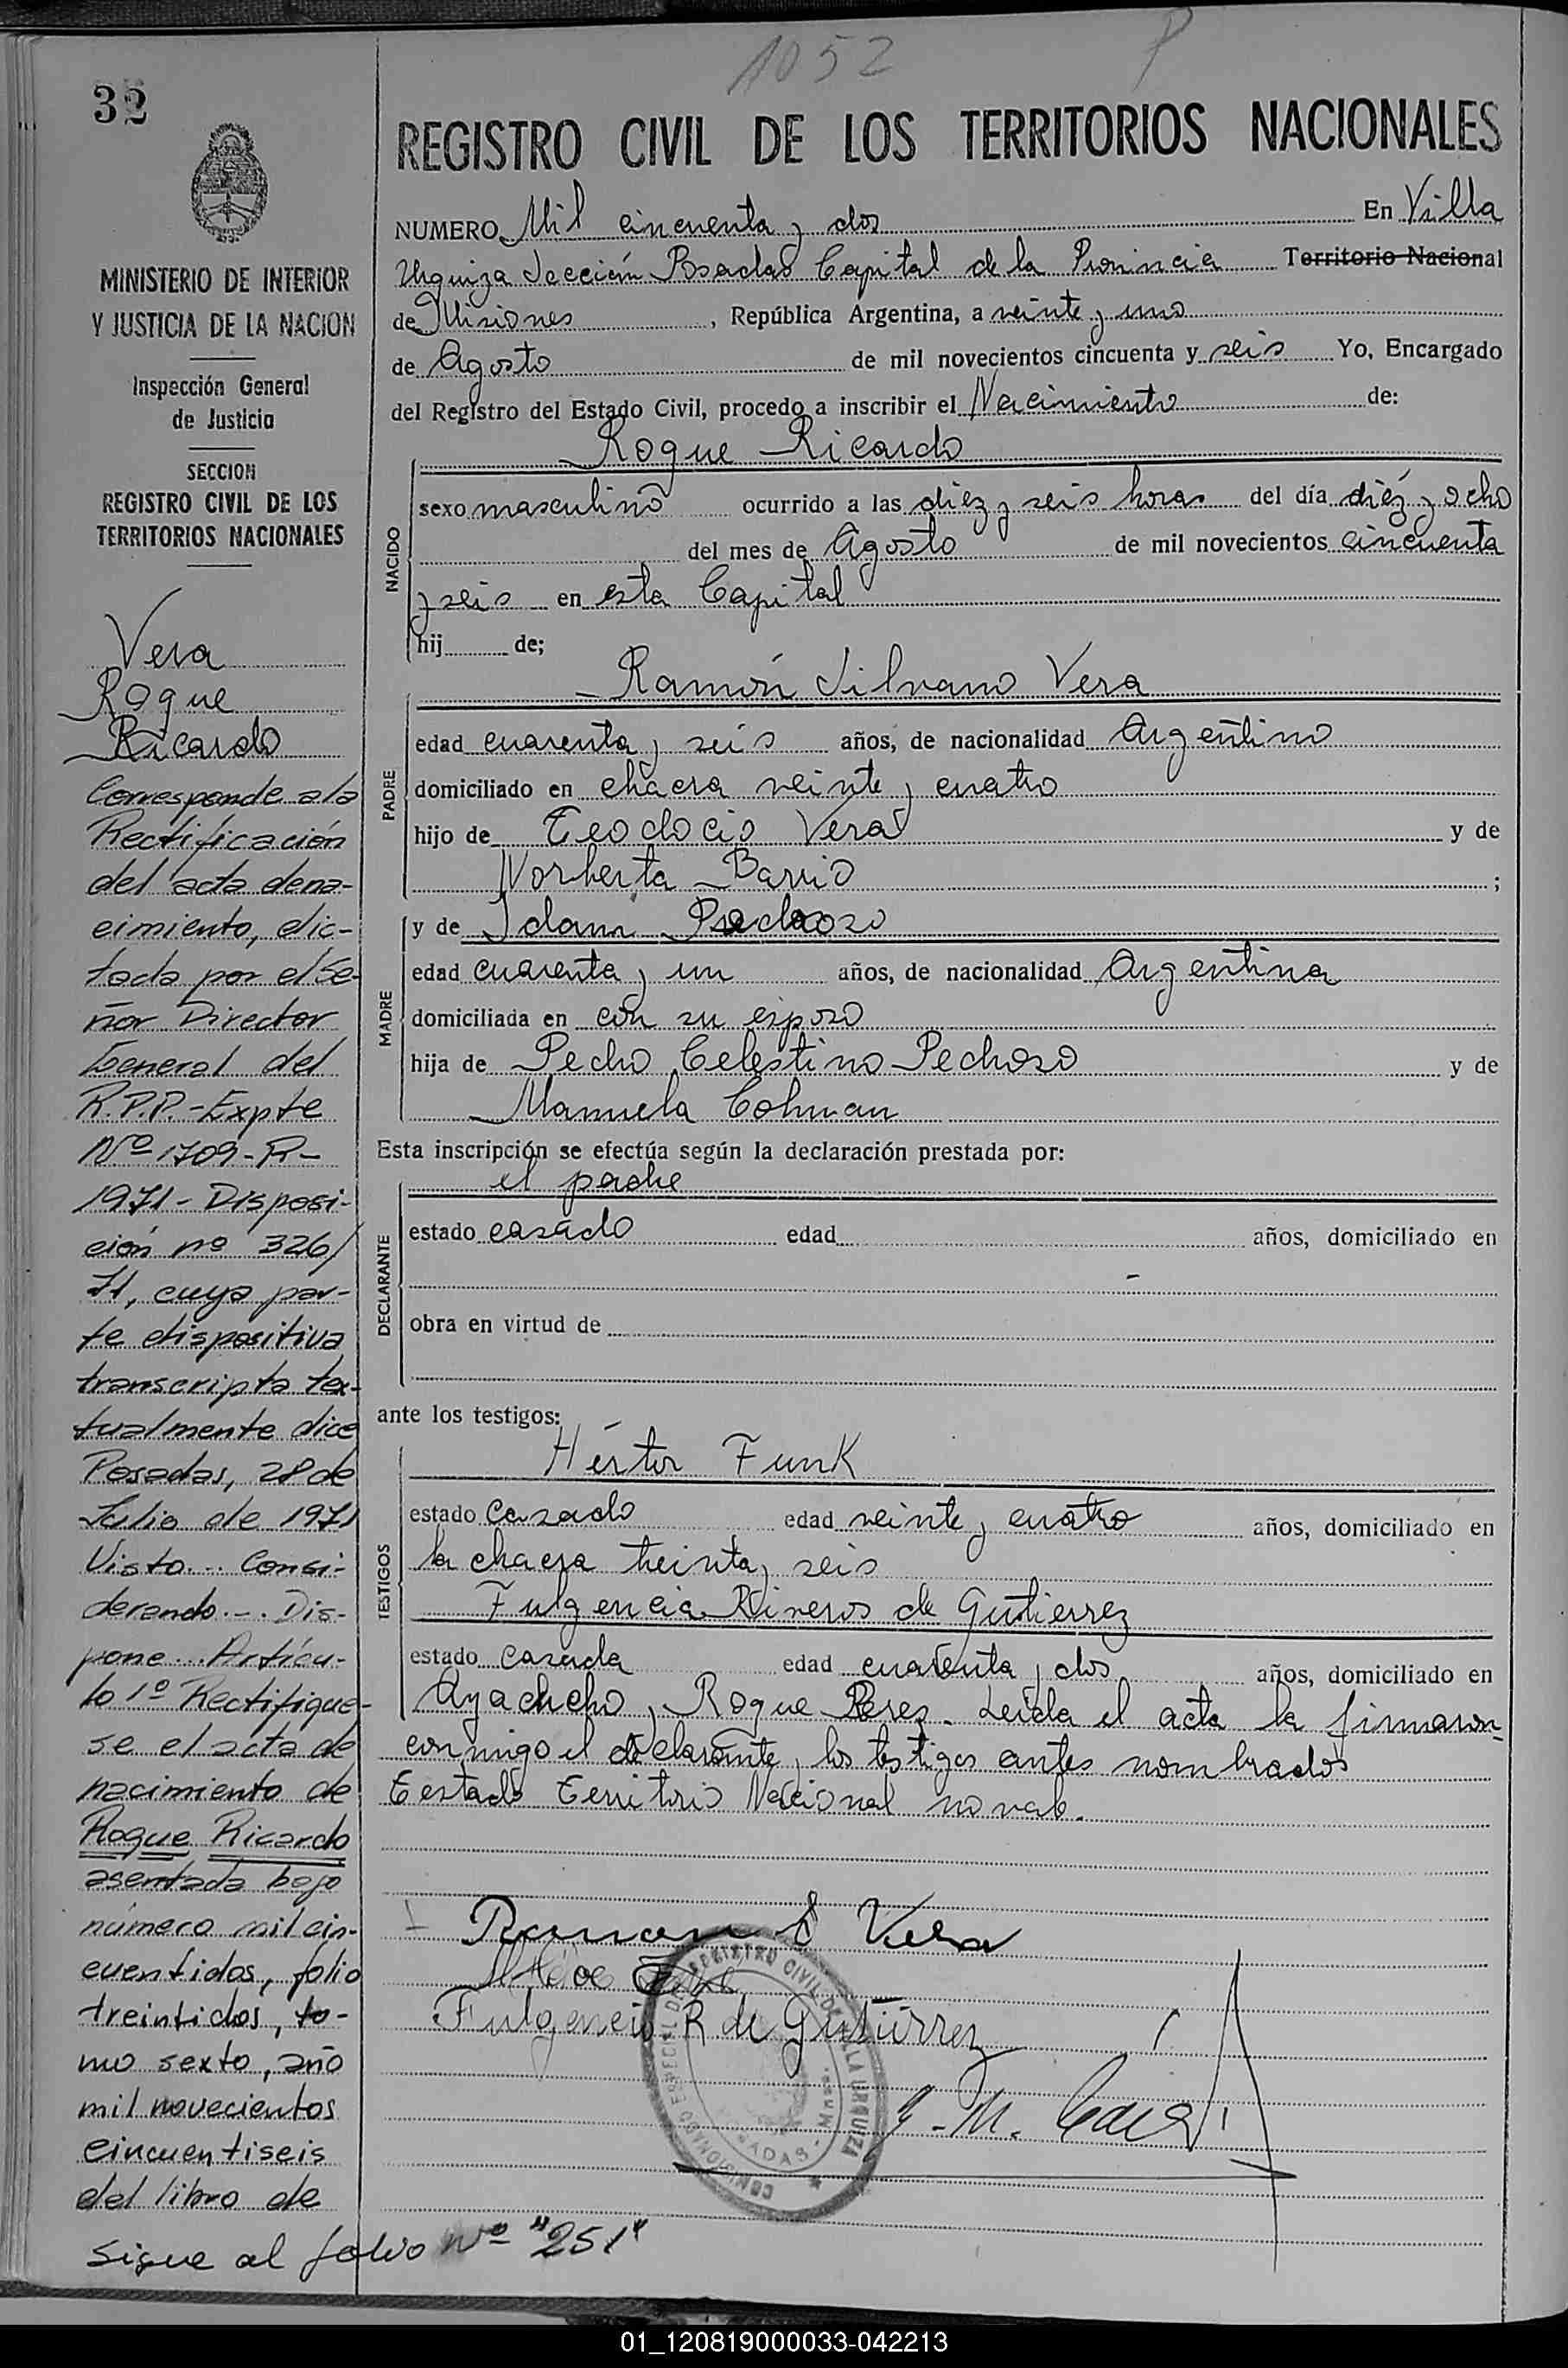 1052 P
32
REGISTRO CIVIL DE LOS TERRITORIOS NACIONALES
NUMERO Mil cincuenta y dos En Villa
Urquiza Sección Posadas Capital de la Provincia Territorio Nacional
de Misiones, República Argentina, a veinte y uno
de Agosto de mil novecientos cincuenta y seis Yo, Encargado
del Registro del Estado Civil, procedo a inscribir el Nacimiento de:
Roque Ricardo
NACIDO
sexo masculino ocurrido a las diez y seis horas del día diéz y ocho
del mes de Agosto de mil novecientos cincuenta
y seis en esta Capital
hij de;
Ramón Silvano Vera
PADRE
edad cuarenta y seis años, de nacionalidad Argentino
domiciliado en chacra veinte y cuatro
hijo de Teodocio Vera y de
Norberta Barrio ;
MADRE
y de Idam Pedrozo
edad cuarenta y un años, de nacionalidad Argentina
domiciliada en con su esposo
hija de Pedro Celestino Pedroso y de
Manuela Colman
Esta inscripción se efectúa según la declaración prestada por:
el padre
DECLARANTE
estado casado edad años, domiciliado en
obra en virtud de
ante los testigos:
Héctor Funk
TESTIGOS
estado Casado edad veinte y cuatro años, domiciliado en
la chacra treinta y seis
Fulgencia Riveros de Gutierrez
estado Casada edad cuarenta y dos años, domiciliado en
Ayachcho y Roque Perez. Leida el acta la firmaron
conmigo el declarante, los testigos antes nombrados
Testado Territorio Nacional no vale.
Ramon S Vera
Fulgencia R de Gutiérrez
COMISIONADO ESPECIAL DEL REGISTRO CIVIL DE VILLA URQUIZA
POSADAS - Mnes.
MINISTERIO DE INTERIOR
Y JUSTICIA DE LA NACION
Inspección General
de Justicia
SECCION
REGISTRO CIVIL DE LOS
TERRITORIOS NACIONALES
Vera
Roque
Ricardo
Corresponde a la
Rectificación
del acta de na-
cimiento, dic-
tada por el Se-
ñor Director
General del
R.P.P.-Expte
Nº 1709-R-
1971- Disposi-
ción nº 326/
71, cuya par-
te dispositiva
transcripta tex-
tualmente dice
Posadas, 28 de
Julio de 1971
Visto... Consi-
derando.-. Dis-
pone... Artícu-
lo 1º Rectifique-
se el acta de
nacimiento de
Roque Ricardo
asentada bajo
número mil cin-
cuentidos, folio
treintidos, to-
mo sexto, año
mil novecientos
cincuentiseis
del libro de
sigue al folio Nº "251"
01_120819000033-042213